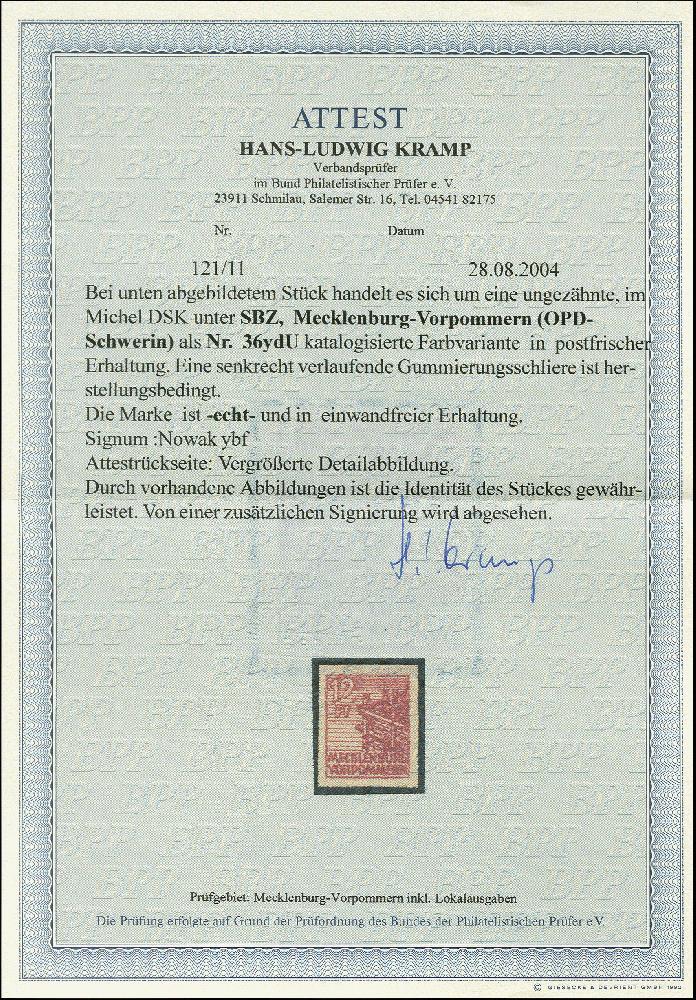 ATTEST
HANS-LUDWIG KRAMP
Verbandsprüfer
im Bund Philatelistischer Prüfer e. V.
23911 Schmilau, Salemer Str. 16, Tel. 04541 82175
Nr. Datum
121/11 28.08.2004
Bei unten abgebildetem Stück handelt es sich um eine ungezähnte, im
Michel DSK unter SBZ, Mecklenburg-Vorpommern (OPD-
Schwerin) als Nr. 36ydU katalogisierte Farbvariante in postfrischer
Erhaltung. Eine senkrecht verlaufende Gummierungsschliere ist her-
stellungsbedingt.
Die Marke ist -echt- und in einwandfreier Erhaltung.
Signum :Nowak ybf
Attestrückseite: Vergrößerte Detailabbildung.
Durch vorhandene Abbildungen ist die Identität des Stückes gewähr-
leistet. Von einer zusätzlichen Signierung wird abgesehen.
H. L. Kramp
12
MECKLENBURG
VORPOMMERN
Prüfgebiet: Mecklenburg-Vorpommern inkl. Lokalausgaben
Die Prüfung erfolgte auf Grund der Prüfordnung des Bundes der Philatelistischen Prüfer e.V.
© GIESECKE & DEVRIENT GMBH 1992